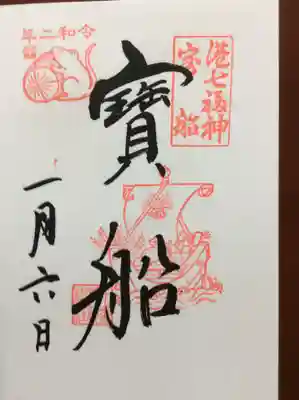 港七福神
宝船
令和二年
寶船
一月六日